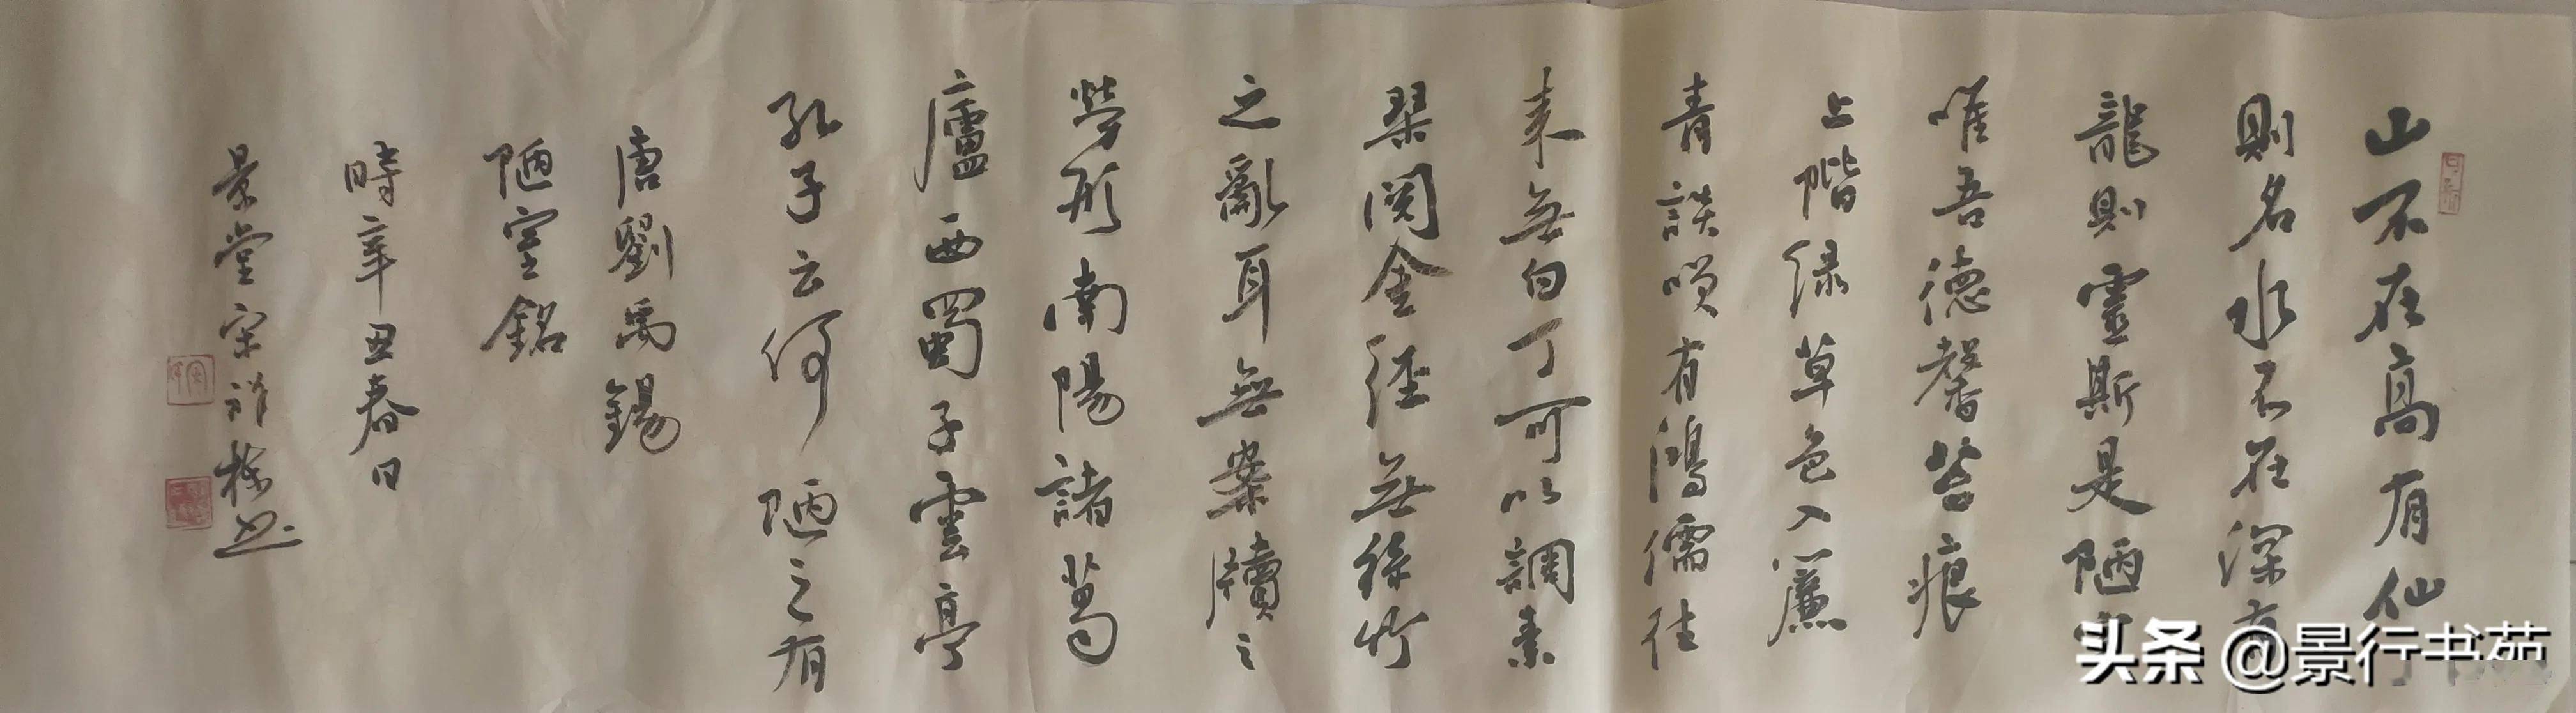 山不在高有仙
則名水不在深有
龍則靈斯是陋室
唯吾德馨苔痕
上階绿草色入簾
青談唄有鴻儒往
来無白丁可以調素
琹閱金經無絲竹
之亂耳無案牘之
勞形南陽諸葛
廬西蜀子雲亭
孔子云何陋之有
唐劉禹錫
陋室銘
時辛丑春日
景堂宗祥栋书
头条 @景行书苑